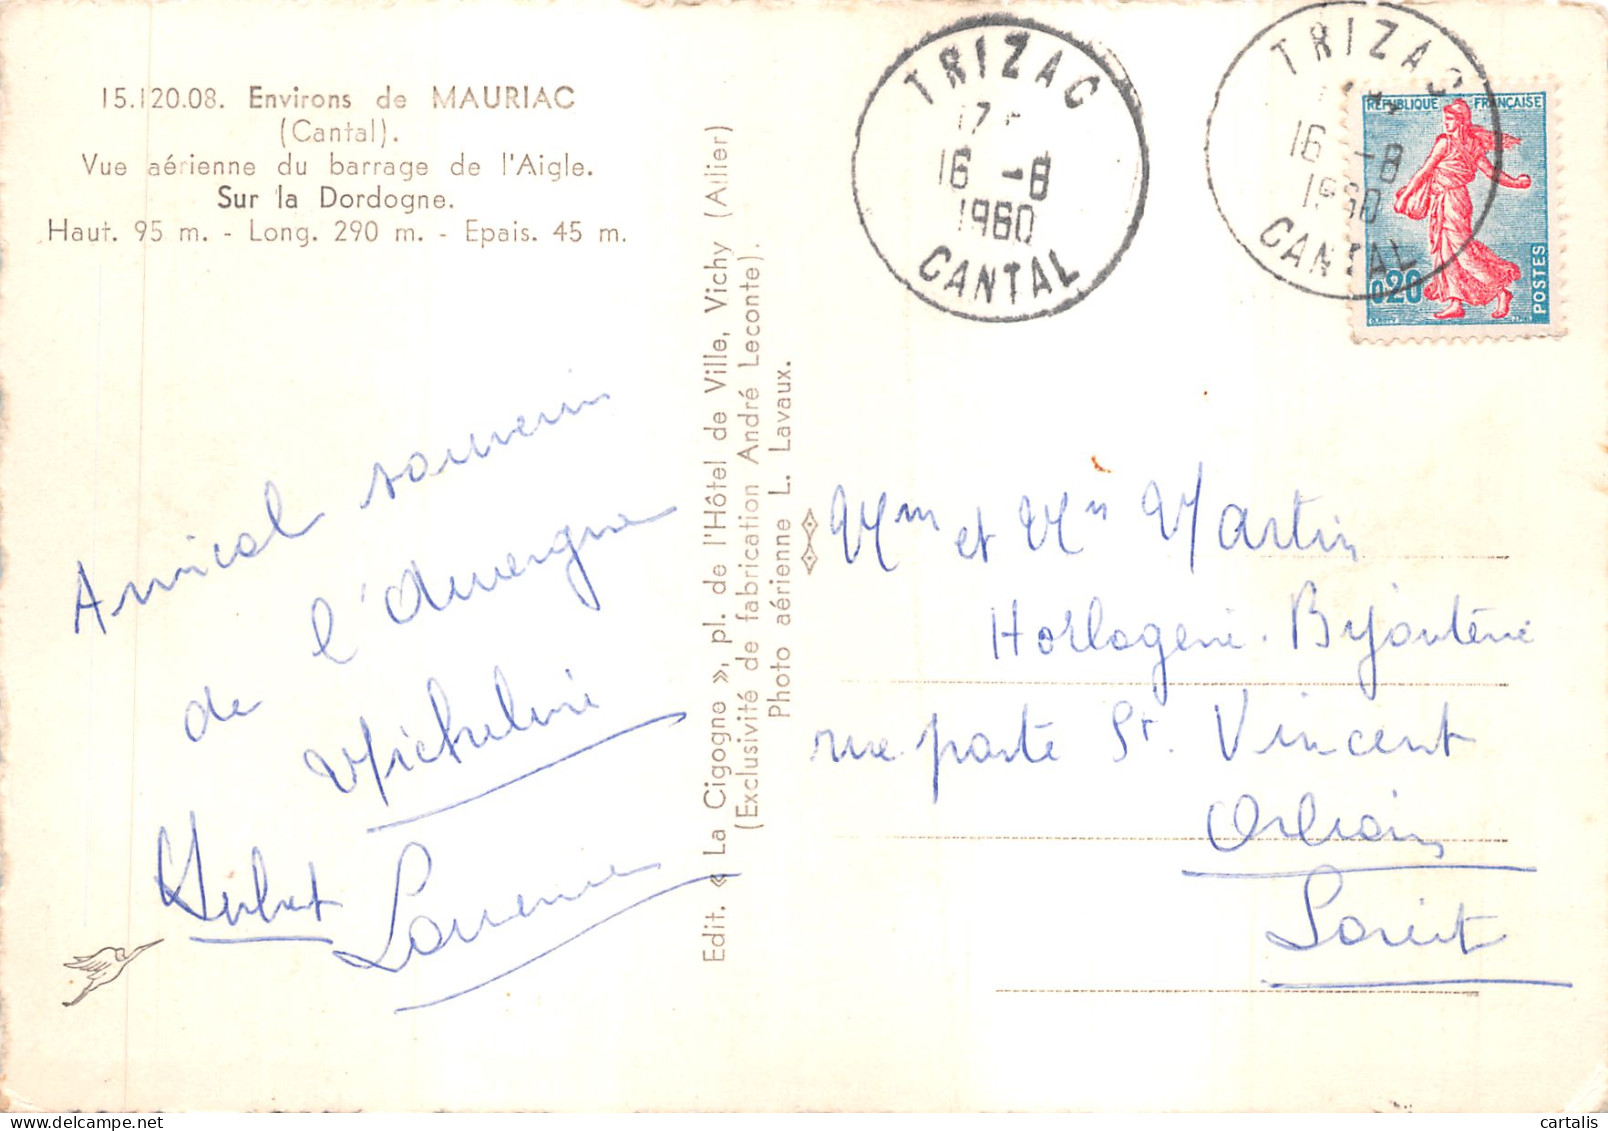 15.120.08. Environs de MAURIAC
(Cantal).
Vue aérienne du barrage de l'Aigle.
Sur la Dordogne.
Haut. 95 m. - Long. 290 m. - Epais. 45 m.
Amical souvenir
de l'Auvergne
Micheline
Hubert Laurence
Edit. « La Cigogne », pl. de l'Hôtel de Ville, Vichy (Allier)
(Exclusivité de fabrication André Leconte).
Photo aérienne L. Lavaux.
TRIZAC
17
16 -8
1960
CANTAL
TRIZAC
16 -8
1960
CANTAL
RÉPUBLIQUE FRANÇAISE
0,20
POSTES
et Martin
Horlogerie. Bijouterie
rue porte St. Vincent
Orléans
Loiret
cartalis